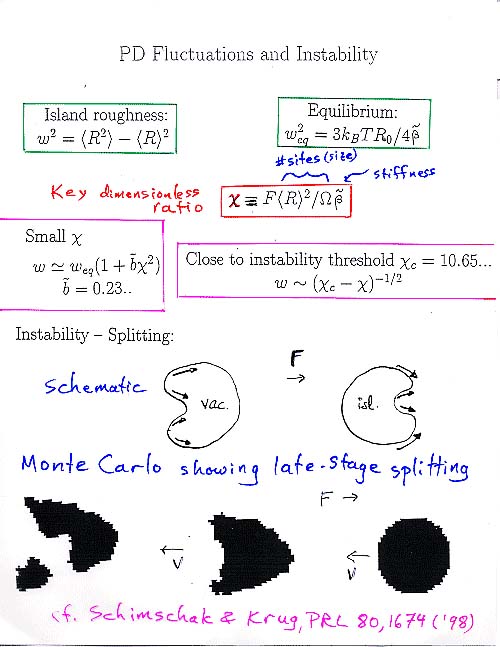 PD Fluctuations and Instability
Island roughness:
w² = ⟨R²⟩ − ⟨R⟩²
Equilibrium:
w²_eq = 3k_BTR₀/4β̃
#sites (size)
stiffness
Key dimensionless
ratio
χ ≡ F⟨R⟩²/Ωβ̃
Small χ
w ≃ w_eq(1 + b̃χ²)
b̃ = 0.23..
Close to instability threshold χ_c = 10.65...
w ∼ (χ_c − χ)^{−1/2}
Instability – Splitting:
F
→
schematic
vac.
isl.
Monte Carlo showing late-stage splitting
F →
←
V
←
V
cf. Schimschak & Krug, PRL 80, 1674 ('98)